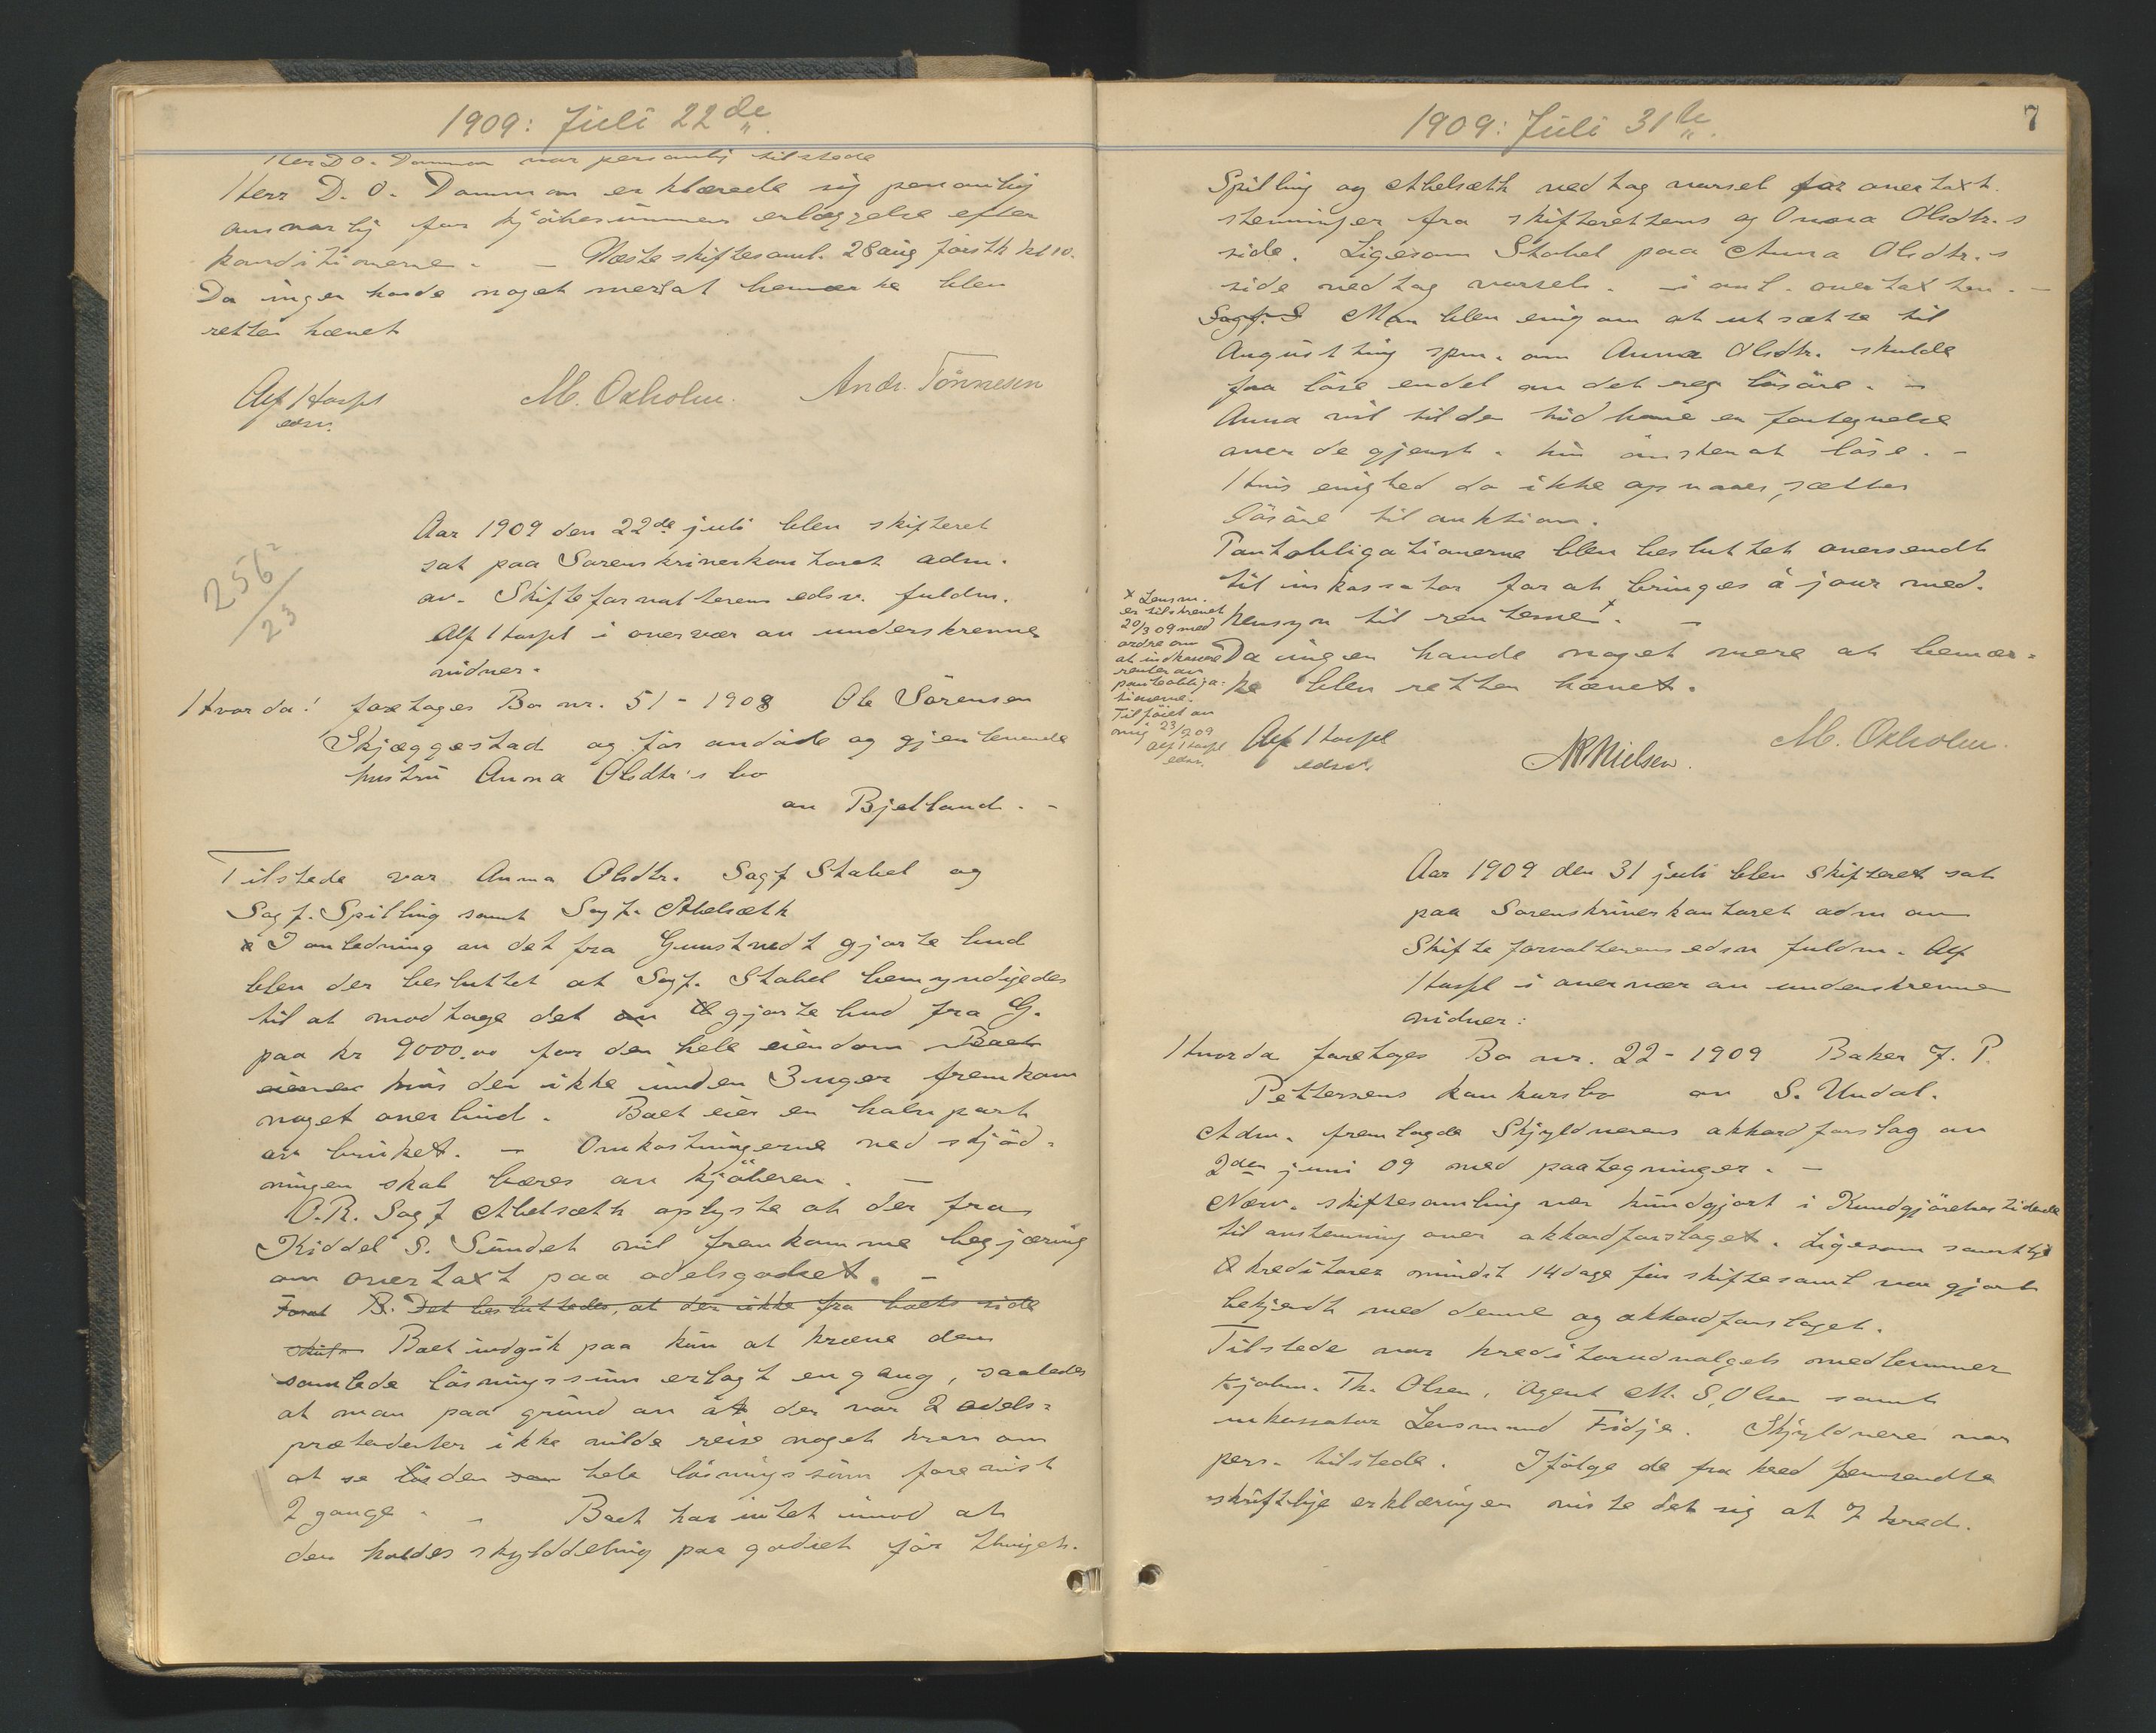 1909: Juli 22de
Herr D. O. Damman var personlig tilstede
Herr D. O. Damman erklærede sig personlig
ansvarlig for kjøbesummens erlæggelse efter
konditionerne. – Næste skiftesaml. 28 aug førstk kl 10.
Da ingen havde noget mer at bemærke blev
retten hævet
Alf Harfst M. Oxholm. Andr. Tönnesen
edsv.
256²/23
Aar 1909 den 22de juli blev skifteret
sat paa Sorenskriverkontoret adm.
av. Skifteforvalterens edsv. fuldm.
Alf i overvær av underskrevne
vidner.
Hvorda: foretoges Bo nr. 51 - 1908 Ole Sörensen
Skjæggestad og før avdøde og gjenlevende
hustru Anna Olsdtr's bo
av Bjelland. -
Tilstede var Anna Olsdtr. Sagf Stabel og
Sagf. Spilling samt Sagf. Abelsæth
I anledning av det fra Gunstvedt gjorte bud
blev der besluttet at Sagf. Stabel bemyndigedes
til at modtage det av gjorte bud fra G.
paa kr 9000.00 for den hele eiendom Boet
eiener hvis der ikke inden 3 uger fremkom
noget overbud. Boet eier en halvpart
av bruket. – Omkostningerne ved skjöd-
ningen skal bæres av kjöberen. –
O.R. Sagf Abelsæth oplyste at der fra
Kiddel S. Sundet vil fremkomme begjæring
om overtaxt paa odelsgodset. –
B. Det besluttedes, at der ikke fra boets side
skul Boet indgik paa kun at kræve den
samlede løsningssum erlagt en gang, saaledes
at man paa grund av at der var 2 odels-
prætendenter ikke vilde reise noget krav om
at se den hele løsningssum forevist
2 gange. – Boet har intet imod at
den holdes skylddeling paa godset før thinget.
1909: Juli 31te
7
Spilling og Abelsæth vedtog varsel for overtaxt-
stevninger fra skifterettens og Anna Olsdtr.s
side. Ligesom Stabel paa Anna Olsdtr.s
side vedtog varsel. i anl. overtaxten. –
Sagf. S Man blev enig om at utsætte til
Augustting spm. om Anna Olsdtr. skulde
faa løse endel av det reg løsøre. –
Anna vil til den tid have en fortegnelse
over de gjenst. hun ønsker at løse. –
Hvis enighed da ikke opnaaes, sættes
løsøre til auktion.
Pantobligationerne blev besluttet oversendt
til inkassator for at bringes à jour med.
hensyn til renterne. x –
Da ingen havde noget mere at bemær-
ke blev retten hævet.
x Lensm.
er tilskrevet
20/3 09 med
ordre om
at indkassere
renter av
pantobliga-
tionerne.
Tilføiet av
mig 23/3 09
Alf
edsv.
Alf Harfst NNielsen. M. Oxholm.
edsv.
Aar 1909 den 31 juli blev skifteret sat
paa Sorenskriverkontoret adm av
Skifteforvalterens edsv fuldm. Alf
i overvær av underskrevne
vidner:
Hvorda foretoges Bo nr. 22 - 1909 Baker J. P.
Pettersens konkursbo av S. Undal.
Adm. fremlagde Skyldnerens akkordforslag av
2den juni 09 med paategninger. –
Nærv. skiftesamling var kundgjort i Kundgjörelsestidende
til avstemning over akkordforslaget. Ligesom samtlige
kreditorer mindst 14 dage før skiftesaml var gjort
bekjendt med denne og akkordforslaget.
Tilstede var kreditorudvalgets medlemmer
Kjøbm. Th. Olsen, Agent M. S. Olsen samt
inkassator Lensmand Fidje. Skyldneren var
pers. tilstede. Ifølge de fra kred fremsendte
skriftlige erklæringer viste det sig at 7 kred.